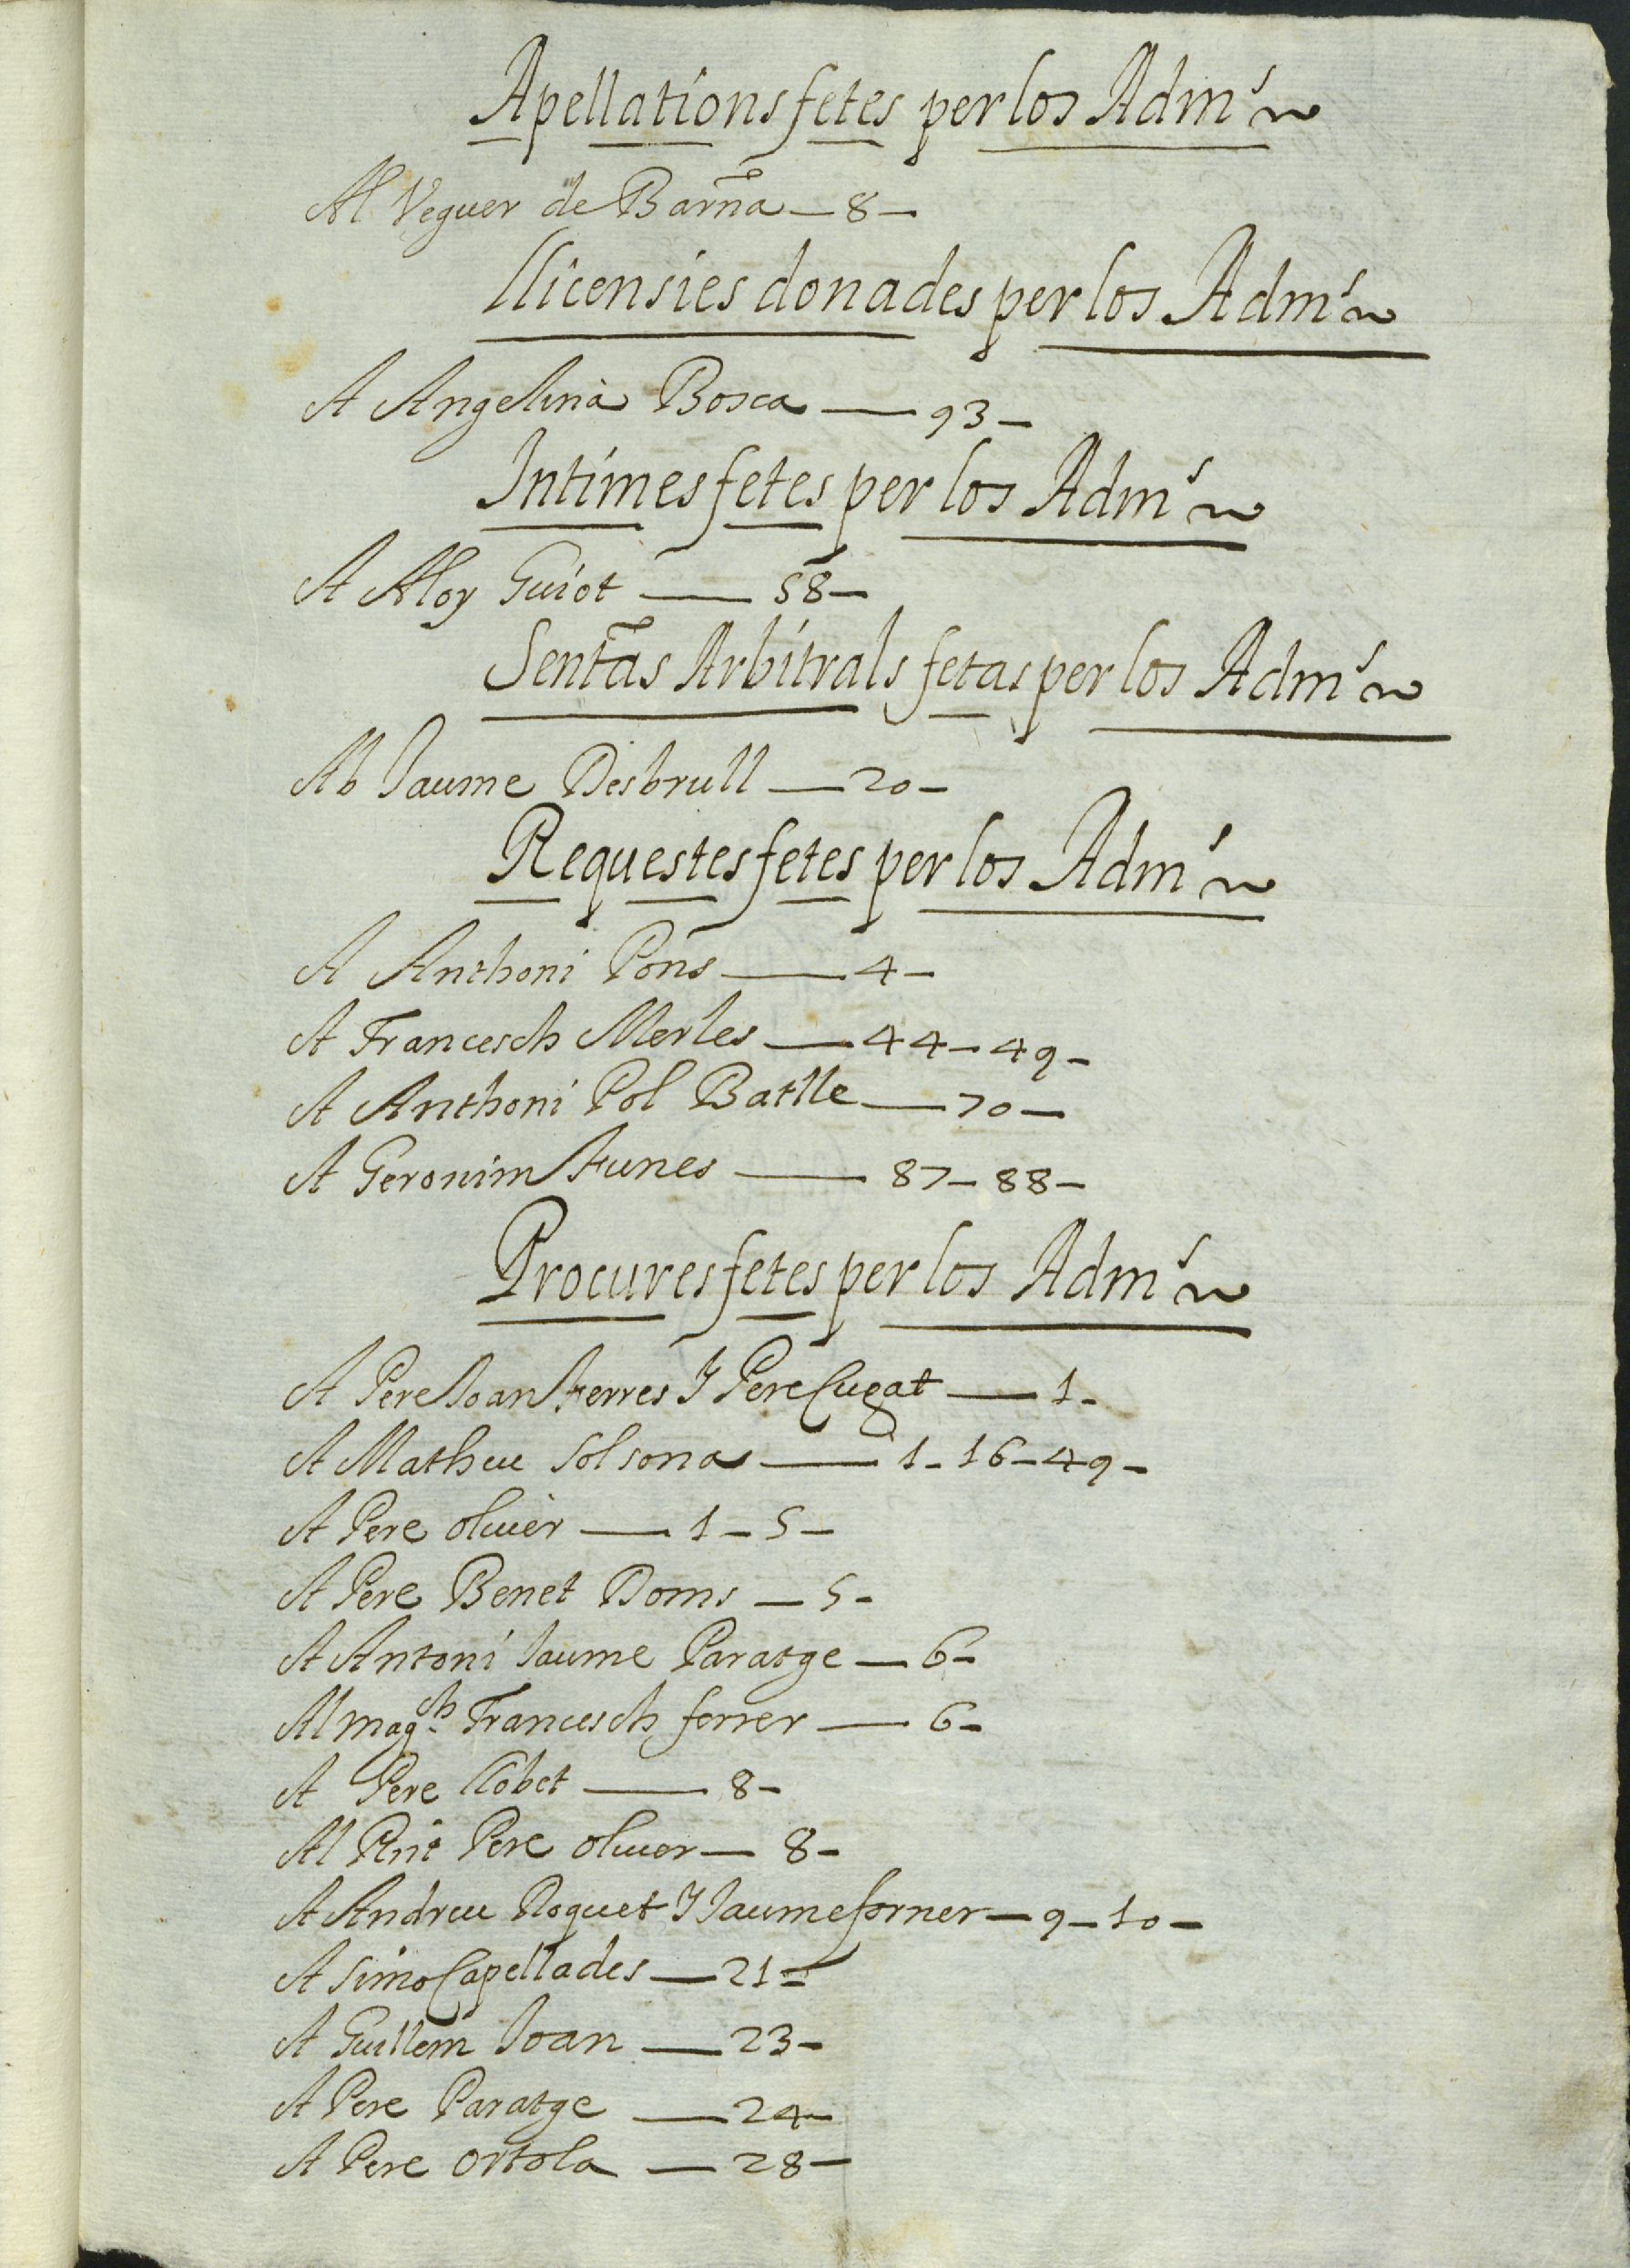 Apellations fetes per los Adm.s
Al Veguer de Barña — 8 —
llicensies donades per los Adm.s
A Angelina Bosca — 93 —
Intimes fetes per los Adm.s
A Aloy Guiot — 58 —
Sentas Arbitrals fetas per los Adm.s
Ab Jaume Desbrull — 20 —
Requestes fetes per los Adm.s
A Anthoni Pons — 4 —
A Francesch Merles — 44 — 49 —
A Anthoni Pol Batlle — 70 —
A Geronim Funes — 87 — 88 —
Procures fetes per los Adm.s
A Pere Joan Ferres Y Pere Cugat — 1 —
A Matheu Solsona — 1 — 16 — 49 —
A Pere oliuer — 1 — 5 —
A Pere Benet Doms — 5 —
A Antoni Jaume Paratge — 6 —
Al mag.ch Francesch ferrer — 6 —
A Pere llobet — 8 —
Al Pnt Pere oliuer — 8 —
A Andreu Roquet Y Jaume forner — 9 — 10 —
A Simo Capellades — 21 —
A Guillem Joan — 23 —
A Pere Paratge — 24 —
A Pere Ortola — 28 —